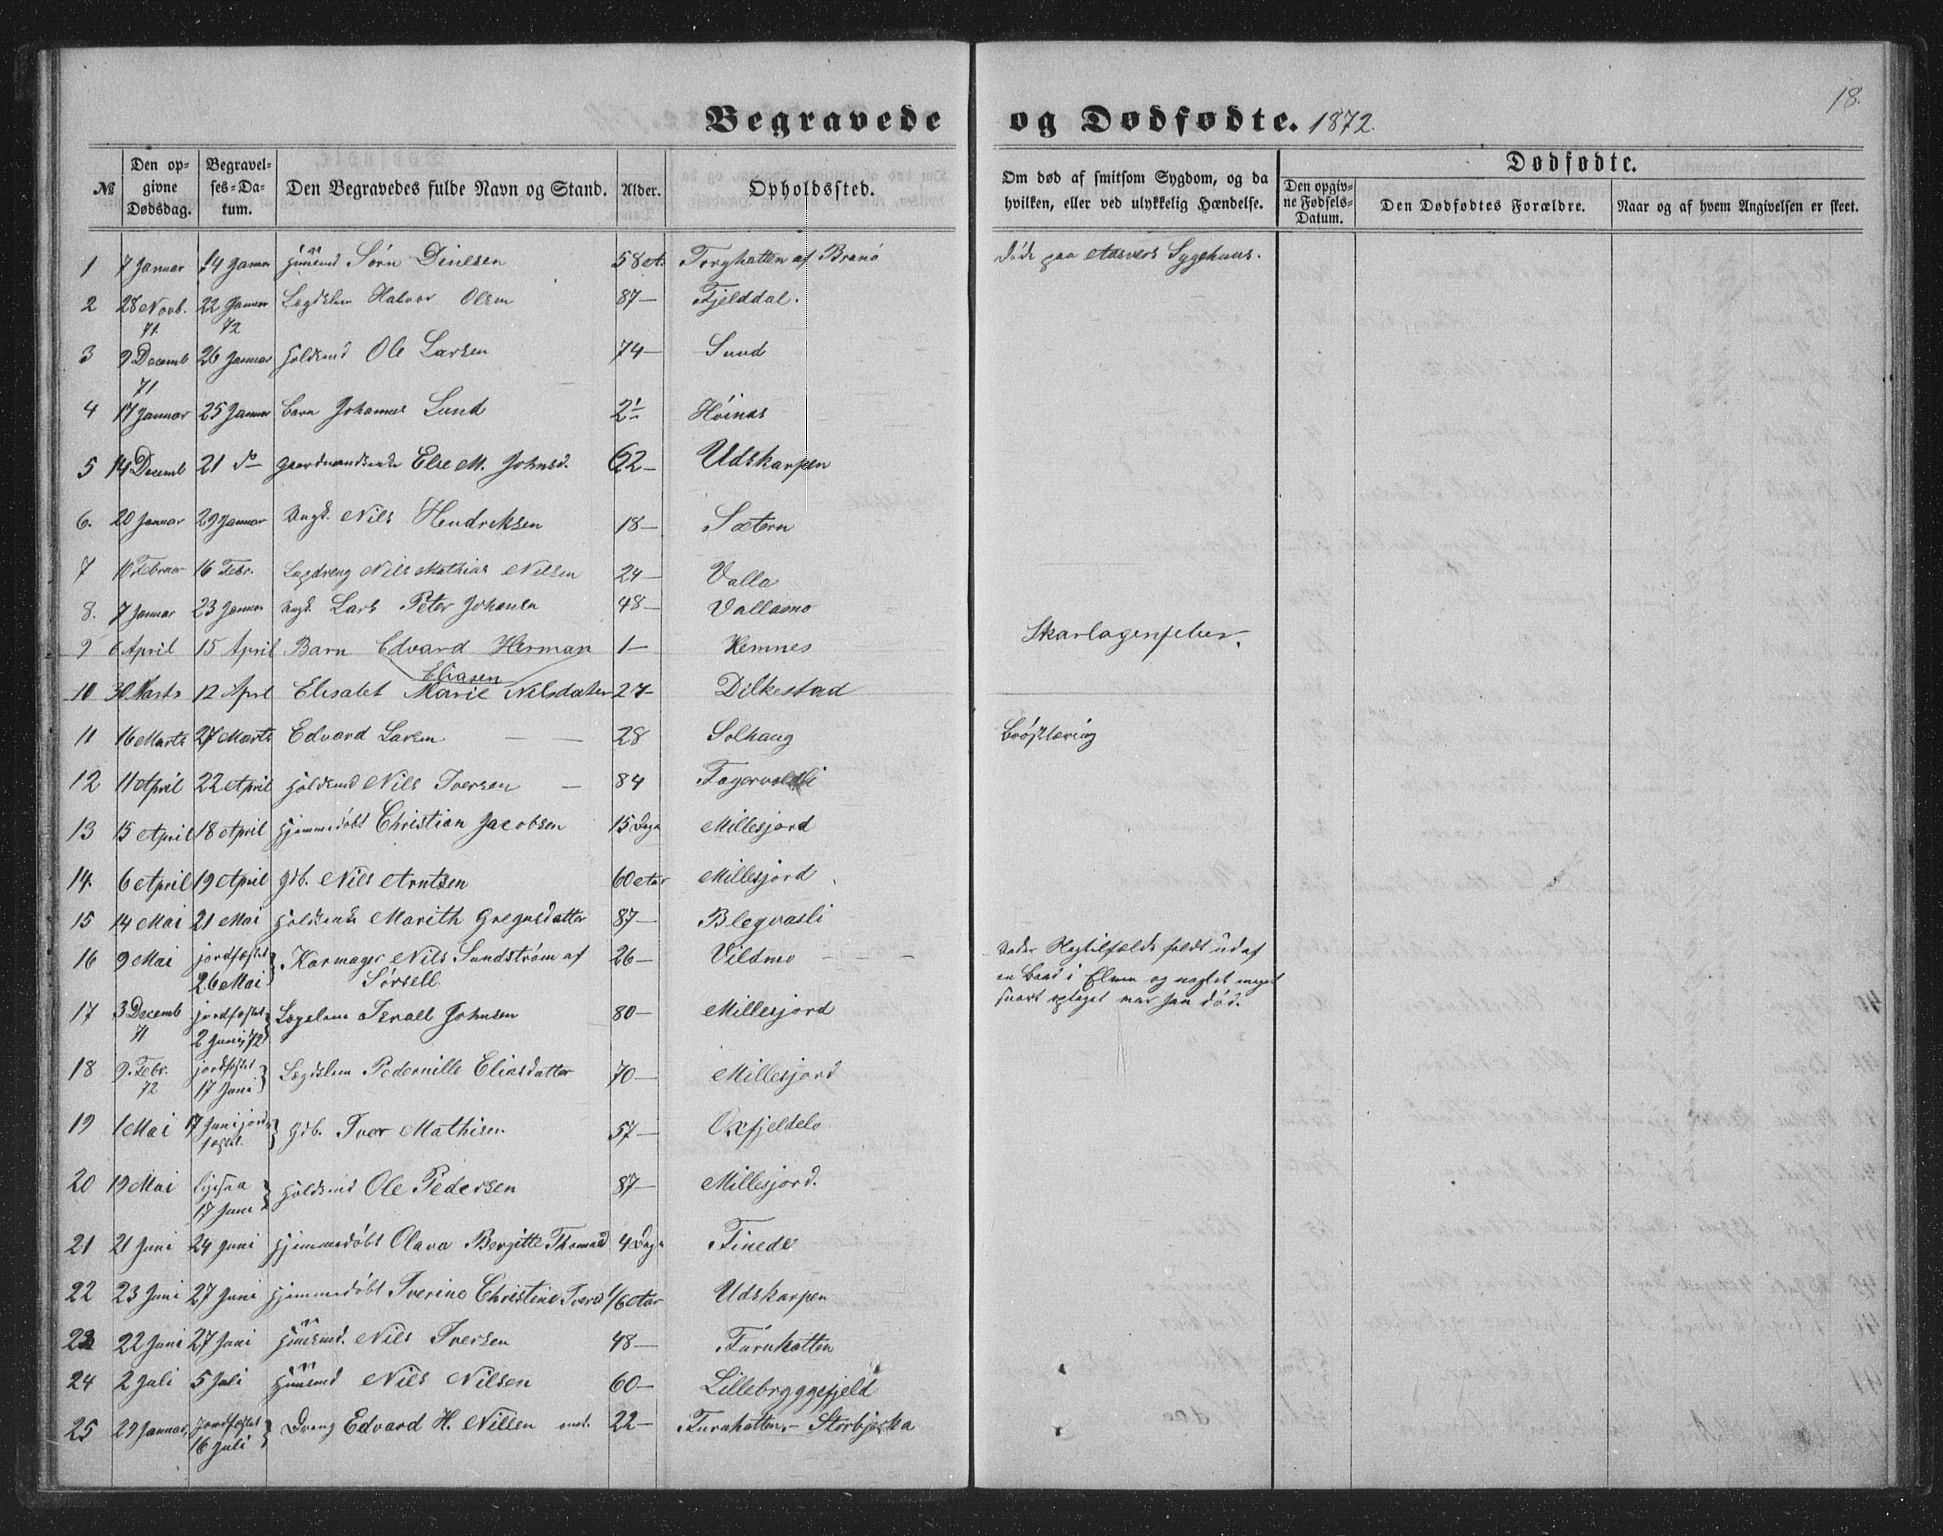 18.
Begravede og Dødfødte. 1872.
№
Den opgivne Dødsdag.
Begravelses-Datum.
Den Begravedes fulde Navn og Stand.
Alder.
Opholdssted.
Om død af smitsom Sygdom, og da hvilken, eller ved ulykkelig Hændelse.
Dødfødte.
Den opgivne Fødsels-Datum.
Den Dødfødtes Forældre.
Naar og af hvem Angivelsen er skeet.
1 7 Januar 14 Januar Huusmd Sørn Dinesen 58 Torghatten af Brønø Døde paa Aasvers Sygehuus.
2 28 Novb. 71 22 Januar 72 Lægdslem Halvor Olsen 87 — Fjelddal.
3 9 Decemb 71 26 Januar Holdsmd Ole Larsen 74 — Sund
4 17 Januar 25 Januar Barn Johannes Lund 2½ Høinæs
5 14 Decemb 21 do Gaardmandsenke Else M. Johnsd. 62 — Udskarpen
6. 20 Januar 29 Januar Ungk. Nils Hendriksen 18 — Sætern
7 10 Februar 16 Febr. Nils Mathias Nilsen 24 — Valla
8. 7 Januar 23 Januar Ungk. Lars Peter Johansen 48 — Vallamo
9 6 April 15 April Barn Edvard Herman Eliasen 1 — Hemnes Skarlagensfeber.
10 30 Marts 12 April Elisabet Marie Nilsdatter 27 — Dilkestad
11 16 Marts 27 Marts Edvard Larsen — — 28 Solhaug Brøsttæring
12 11 April 22 April Holdsmd Nils Iversen — 84 Fagervoldli
13 15 April 18 April Hjemmedøbt Christian Jacobsen 15 Dage Millesjord
14. 6 April 19 April Gdb. Nils Arntsen 60 Aar Millesjord
15 14 Mai 21 Mai Holdsenke Marith Gregusdatter 87 — Blegvasli
16 9 Mai jordfæstet 26 Mai Karmager Nils Sundstrøm af Sørsell 26 — Vildmo — — — under Flagtilfælde faldt ud af
en Baad i Elven og uagtet meget
snart optaget var han død.
17 3 Decemb 71 jordfæstet 2 Juni 72 Lægslem Israel Johnsen 80 — Millesjord
18 9. Febr. 72 jordfæstet 17 Juni Lægdslem Pedernille Eliasdatter 70 — Millesjord
19 1 Mai 17 Juni jordfæstet. Gdb. Iver Mathisen 57 — Oxfjeldelv
20 19 Mai ligesaa 17 Juni Holdsmd Ole Pedersen 87 — Millesjord.
21 21 Juni 24 Juni Hjemmedøbt Olava Bergitte Thomasd 4 Dage Finede
22 23 Juni 27 Juni Hjemmedøbt Iverine Christine Iversd 1/6 Aar Udskarpen
23 22 Juni 27 Juni Huusmd. Nils Iversen 48 — Furuhatten
24 2 Juli 5 Juli Huusmd Nils Nilsen 60 — Lillebryggefjeld
25 29 Januar, Jordfæstet 16 Juli Dreng Edvard H. Nilsen 22 — Furuhatten, — Storbjerka